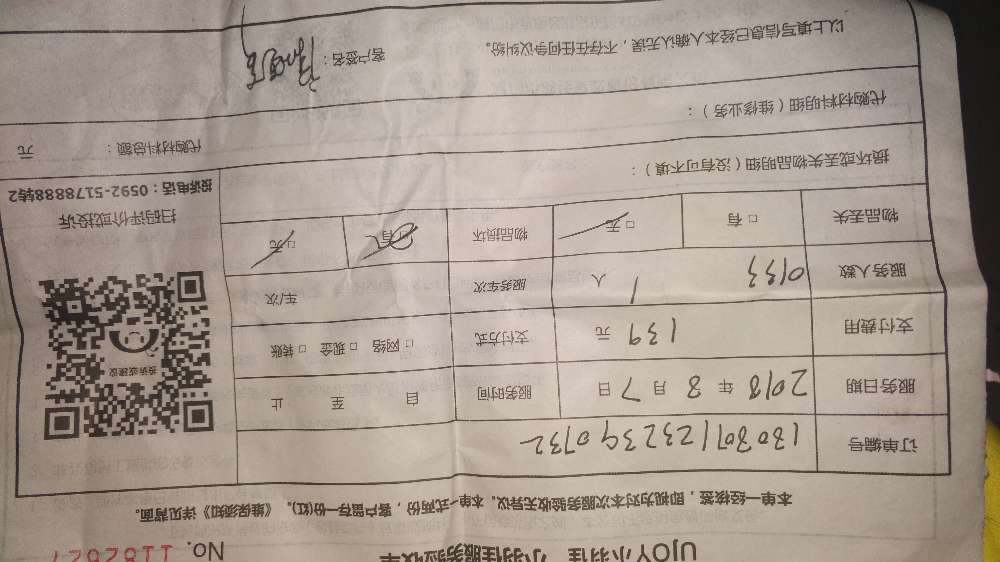 UJOY小羽佳 小羽佳服务验收单
No. 1182627
本单一经核签，即视为对本次服务验收无异议。本单一式两份，客户留存一份(红)。《维保须知》详见背面。
订单编号 180807123239 0732
服务日期 2018 年 8 月 7 日 服务时间 自 至 止
支付费用 139 元 支付方式 □ 网络 □ 现金 □ 转账
服务人数 0133 1 人 服务车次 车/次
物品丢失 □ 有 □ 无 物品损坏 □ 有 □ 无
投诉或建议
扫码评价或投诉
投诉电话：0592-5178888转2
损坏或丢失物品明细（没有可不填）：
代购材料明细（维修业务）：
代购材料总额： 元
以上填写信息已经本人确认无误，不存在任何争议纠纷。
客户签名：